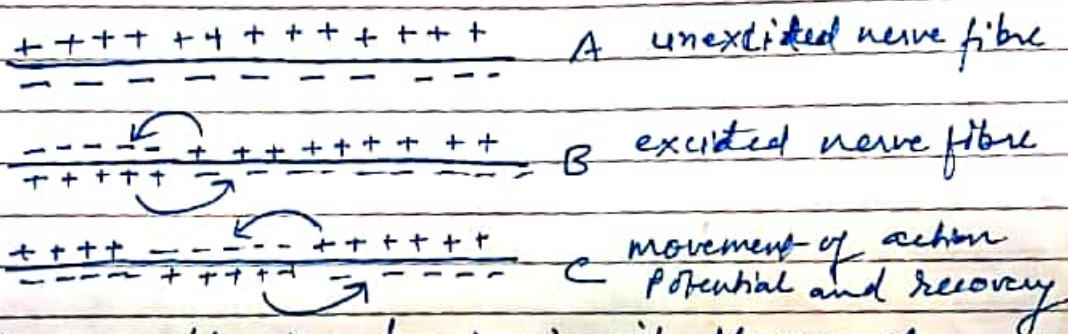 + + + + + + + + + + + + + A unexcited nerve fibre
- - - - - - - - - - -
- - - - - + + + + + + + + + B excited nerve fibre
+ + + + + - - - - - - - -
+ + + + - - - - - + + + + + + C movement of action
- - - - + + + + + - - - - - Potential and recovery